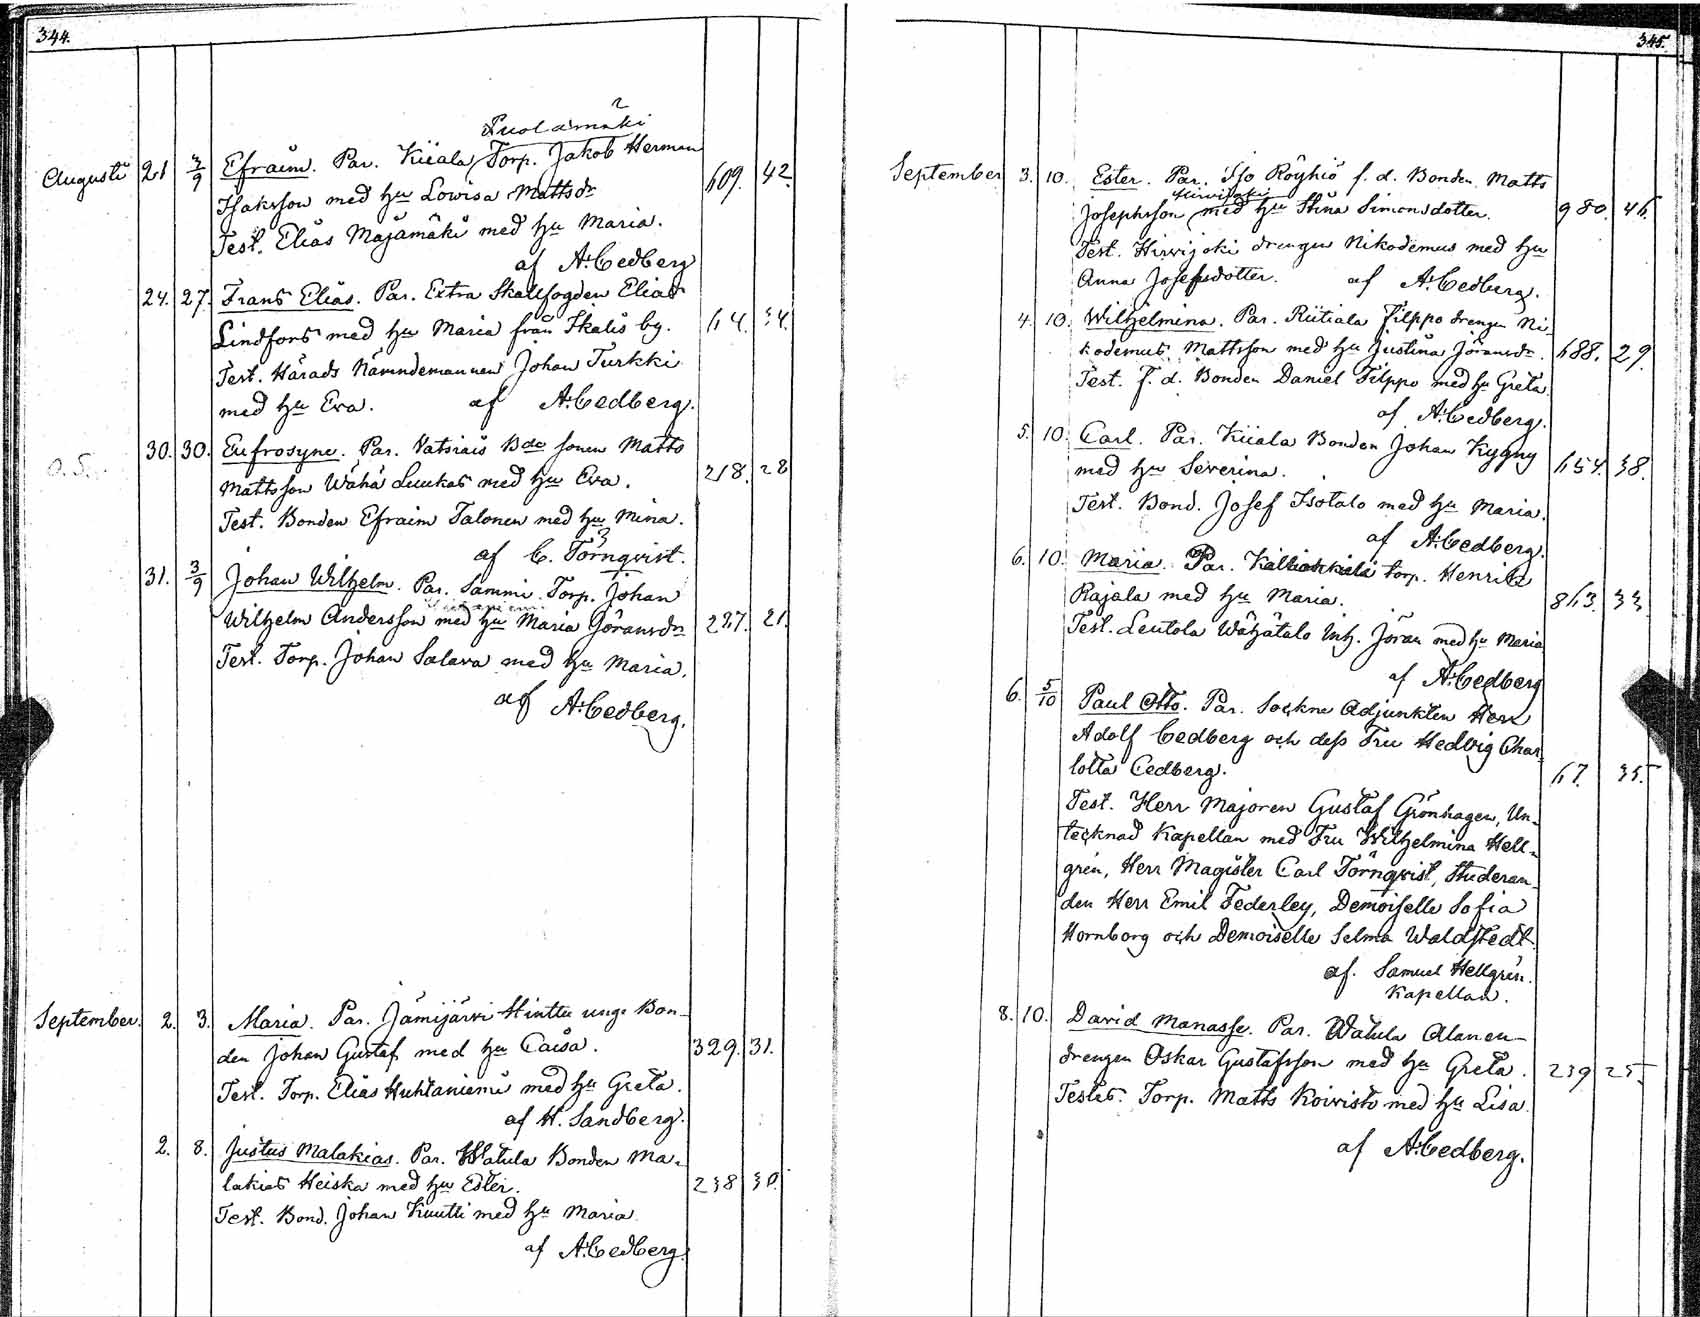 344.
Puolamäki
Augusti 21 3/9 Efraim. Par. Kiiala Torp. Jakob Herman 609. 42.
Isaksson med hu Lowisa Mattsdr
Test. Elias Majamäki med hu Maria.
af A. Cedberg
24. 27. Frans Elias. Par. Extra Skallfogden Elias
Lindfors med hu Maria från Skalis by. 64. 34.
Test. Härads Nämndemannen Johan Turkki
med hu Eva. af A. Cedberg.
30. 30. Eufrosyne. Par. Vatsiais Bde sonen Matts
Mattsson Wähä Luukas med hu Eva. 218. 28
Test. Bonden Efraim Talonen med hu Mina.
af C. Törnqvist.
31. 3/9 Johan Wilhelm. Par. Sammi Torp. Johan
Wilhelm Andersson med hu Maria Göransdr 227. 21.
Test. Torp. Johan Salava med hu Maria.
af A. Cedberg.
September. 2. 3. Maria. Par. Jämijärvi Hinttu unge Bon-
den Johan Gustaf med hu Caisa. 329. 31.
Test. Torp. Elias Huhtaniemi med hu Greta.
af H. Sandberg.
2. 8. Justus Malakias. Par. Watula Bonden Ma-
lakias Heiska med hu Ester. 238 30.
Test. Bond. Johan Kuutti med hu Maria
af A. Cedberg.
345.
September 3. 10. Ester. Par. Iso Röyhiö f. d. Bonden Matts
Hirvijoki
Josephsson med hu Stina Simonsdotter. 980. 46.
Test. Hirvijoki drengen Nikodemus med hu
Anna Josefsdotter. af A. Cedberg.
4. 10. Wilhelmina. Par. Riitiala Filppo drengen Ni-
kodemus Mattsson med hu Justina Jöransdr. 688. 29.
Test. f. d. Bonden Daniel Filppo med hu Greta
af A. Cedberg.
5. 10. Carl. Par. Kiiala Bonden Johan Kygny
med hu Severina. 654. 38.
Test. Bond. Josef Isotalo med hu Maria.
af A. Cedberg.
6. 10. Maria. Par. torp. Henrik
Rajala med hu Maria. 863. 33.
Test. Leutola Wähätalo Inh. Jöran med hu Maria
af A. Cedberg
6. 5/10 Paul Otto. Par. Sockne Adjunkten Herr
Adolf Cedberg och dess Fru Hedvig Char-
lotta Cedberg. 67. 35.
Test. Herr Majoren Gustaf Grönhagen, Un-
tecknad Kapellan med Fru Wilhelmina Hell-
grén, Herr Magister Carl Törnqvist, Studeran-
den Herr Emil Federley, Demoiselle Sofia
Hornborg och Demoiselle Selma Waldstedt.
af. Samuel Hellgrén.
Kapellan.
8. 10. David Manasse. Par. Watula Alanen-
drengen Oskar Gustafsson med hu Greta. 239 25.
Testes. Torp. Matts Koivisto med hu Lisa.
af A. Cedberg.